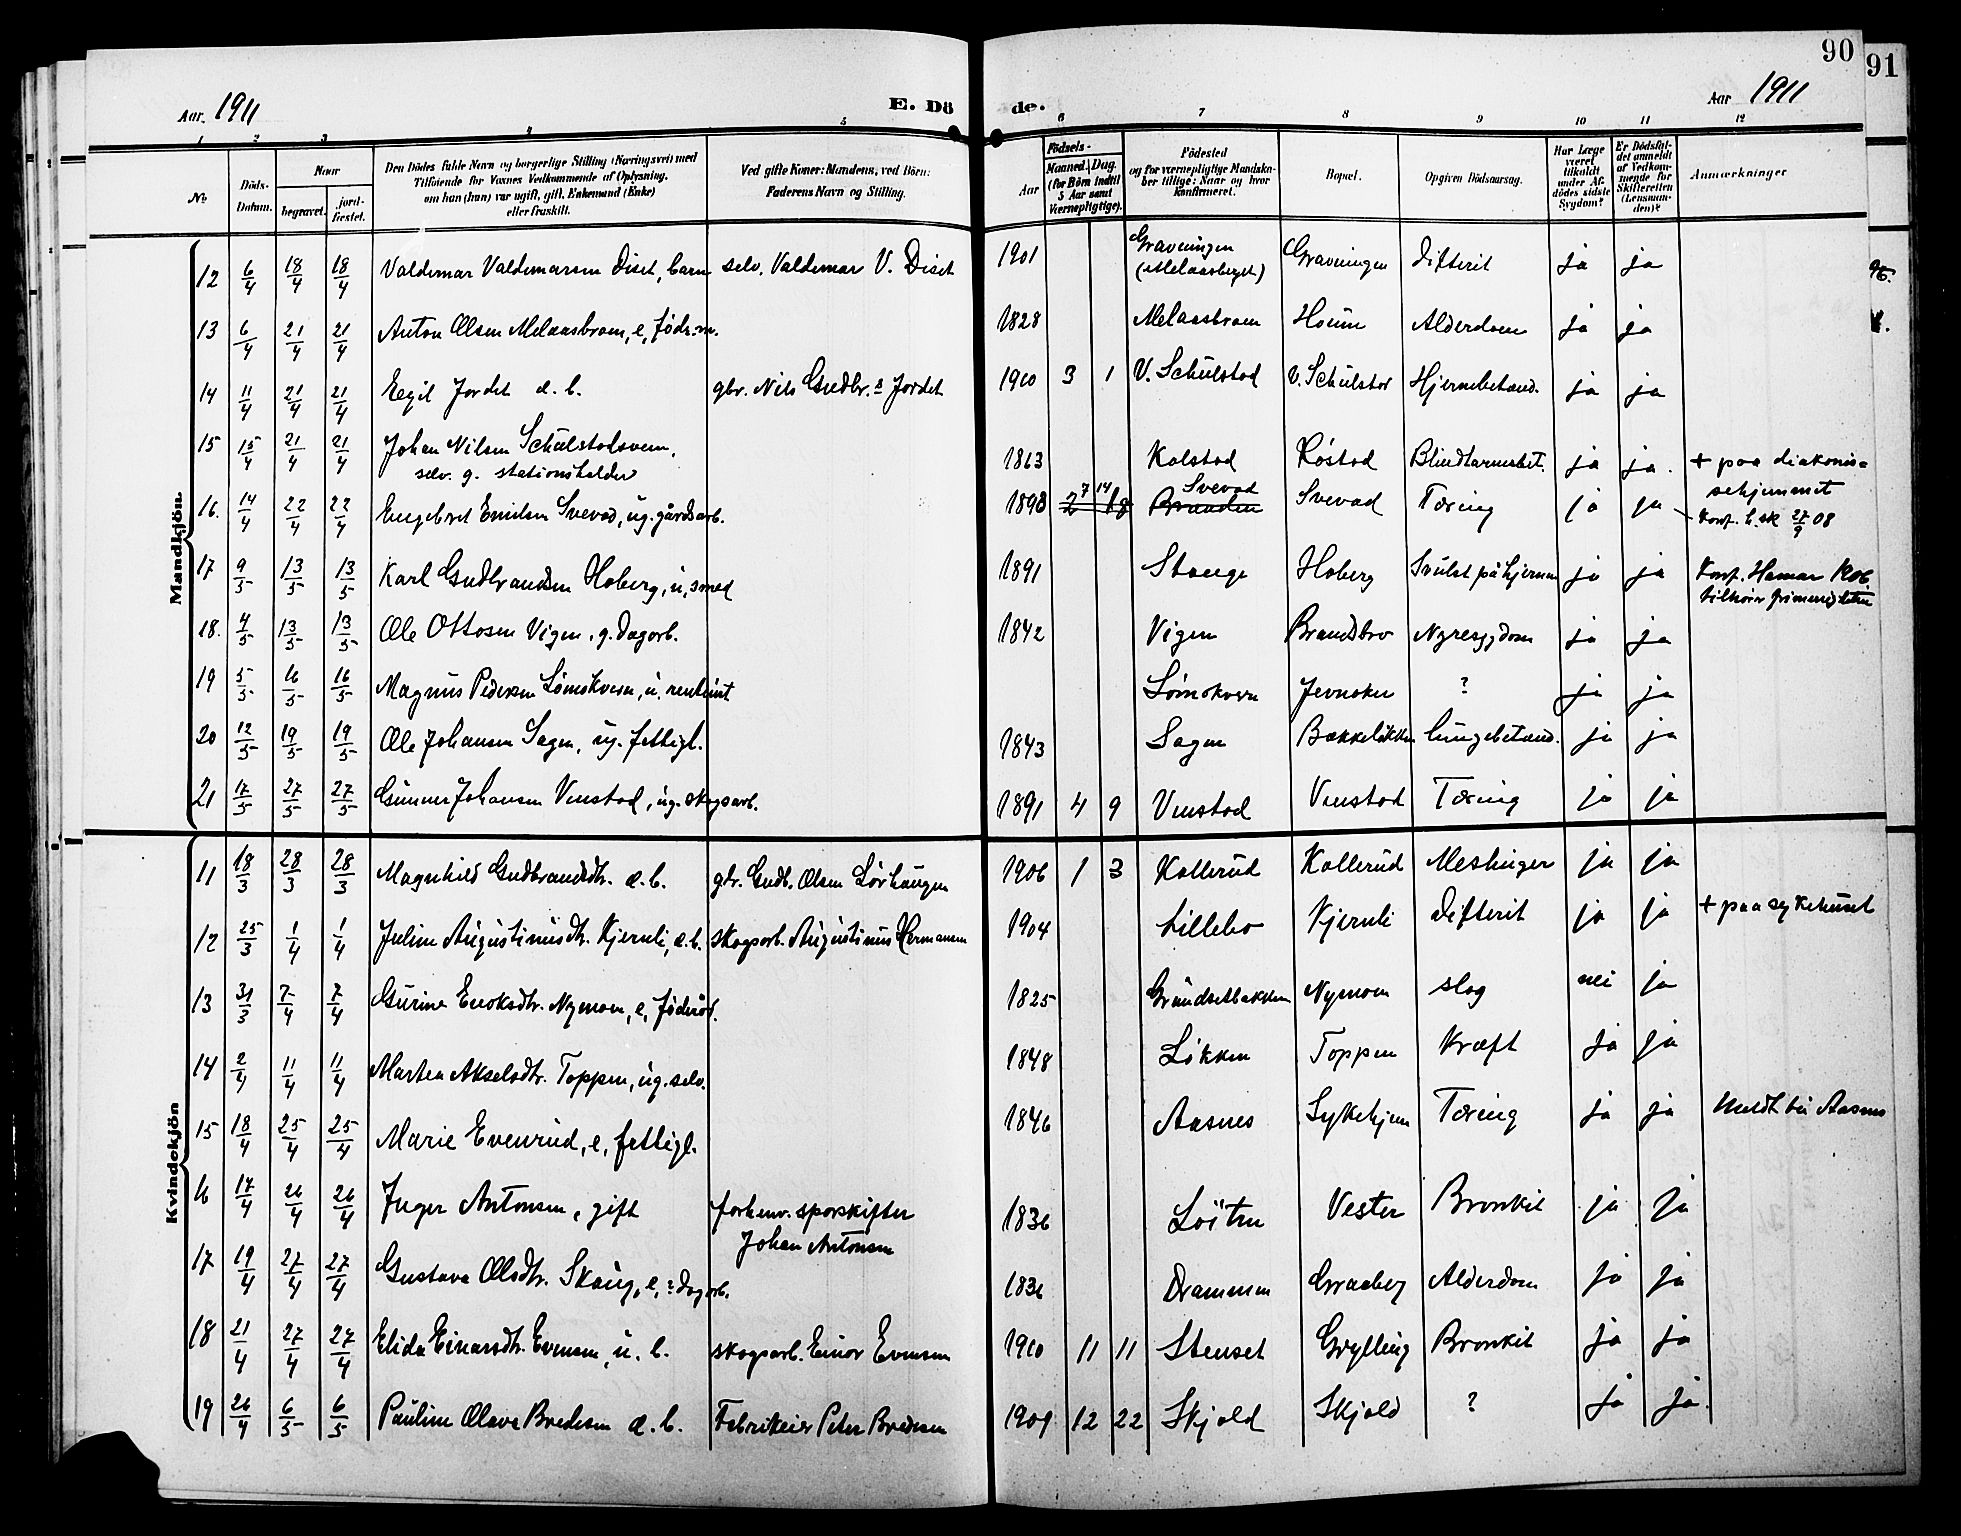 90
91
Aar 1911
E. Dö
de.
Aar 1911
1 2 3 4 5 6 7 8 9 10 11 12
No.
Döds-
Datum.
Naar
begravet.
jord-
fæstet.
Den Dödes fulde Navn og borgerlige Stilling (Næringsvei) med
Tilföiende for Voxnes Vedkommende af Oplysning,
om han (hun) var ugift, gift, Enkemand (Enke)
eller fraskilt.
Ved gifte Koner: Mandens, ved Börn:
Faderens Navn og Stilling.
Födsels-
Aar
Maaned. Dag.
(for Börn indtil
5 Aar samt
Værnepligtige).
Födested
og for værnepligtige Mandska-
ber tillige: Naar og hvor
Konfirmeret.
Bopæl.
Opgiven Dödsaarsag.
Har Læge
været
tilkaldt
under Af-
dödes sidste
Sygdom?
Er Dödsfal-
det anmeldt
af Vedkom-
mende for
Skifteretten
(Lensman-
den)?
Anmærkninger
Mandkjön.
12 6/4 18/4 18/4 Valdemar Valdemarsen Diset, barn selv. Valdemar V. Diset 1901 Gravningen (Melaasberget) Gravningen difterit ja ja
13 6/4 21/4 21/4 Anton Olsen Melaasbraen, e, föds.m. 1828 Melaasbraen Alderdom ja ja
14 11/4 21/4 21/4 Egil Jordet e. b. gbr. Nils Gudbr.s Jordet 1910 3 1 V. Schulstad V. Schulstad Hjernebetænd. ja ja
15 15/4 21/4 21/4 Johan Nilsen Schulstadsveen,
selv. g. stationsholder 1863 Kolstad Löstad Blindtarmsbet. ja ja. + paa diakonis=
sehjemmet
16. 14/4 22/4 22/4 Engebret Emilsen Svevad, ug. gårdsarb. 1893 7 14 Svevad Svevad Tæring ja ja Konf. 27/9 08
17 9/5 13/5 13/5 Karl Gudbrandsen Hoberg, u, smed 1891 Stange Hoberg Svulst på hjernen ja ja Konf. Hamar 1906
18. 4/5 13/5 13/5 Ole Ottosen Vigen, g. dagarb. 1842 Vigen Brandsbro Nyresygdom ja ja
19 5/5 16/5 16/5 Magnus Pedersen Lömokvern, u. rentenist Lömokvern ? ja ja
20 12/5 19/5 19/5 Ole Johansen Sagen, ug. fattigl. 1843 Sagen Bakkeløkken lungebetænd. ja ja
21 17/5 27/5 27/5 Gunnar Johansen Vinstad, ug. skogsarb. 1891 4 9 Vinstad Vinstad Tæring ja ja
Kvindekjön
11 18/3 28/3 28/3 Magnhild Gudbrandsdtr. e. b. gbr. Gudb. Olsen Lörhaugen 1906 1 3 Kollerud Kollerud Meslinger ja ja
12 25/3 1/4 1/4 Juline Augustinusdtr. Kjernli, e. b. skogsarb. Augustinus Hermansen 1904 Lillebo Kjernli difterit ja ja + paa sykehuset
13 31/3 7/4 7/4 Gurine Enoksdtr. Nymoen, e, föderåd. 1825 Grundsetbakken Nymoen slag nei ja
14 2/4 11/4 11/4 Martea Akselsdtr. Toppen, ug. selv. 1848 Løkken Toppen Kræft ja ja
15 18/4 25/4 25/4 Marie Evenrud, e, fattigl. 1846 Aasnes Sykehjem Tæring ja ja Meldt til Aasnes
16 17/4 26/4 26/4 Inger Antonsen, gift forhenv. sporskifter
Johan Antonsen 1836 Löiten Vester Bronkit ja ja
17 19/4 27/4 27/4 Gustava Olsdtr. Skaug, e, dagarb. 1836 Drammen Graaberg Alderdom ja ja
18 21/4 27/4 27/4 Elida Einarsdtr. Evensen, u. b. skogsarb. Einar Evensen 1910 11 11 Stenset Grylling Bronkit ja ja
19 26/4 6/5 6/5 Pauline Olava Bredesen e. b. Fabrikeier Peter Bredesen 1909 12 22 Skjold Skjold ? ja ja.